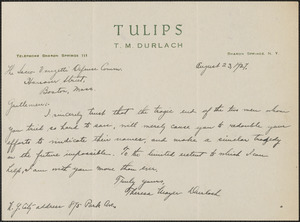 TULIPS
T. M. DURLACH
TELEPHONE SHARON SPRINGS 111
SHARON SPRINGS, N. Y.
August 23, 1927.
The Sacco Vanzetti Defense Comm
Hanover Street,
Boston, Mass.
Gentlemen:
I sincerely trust that the tragic end of the two men whom
you tried so hard to save, will merely cause you to redouble your
efforts to vindicate their names, and make a similar tragedy
in the future impossible. To the limited extent to which I can
help, I am with you more than ever.
Truly yours,
Theresa Mayer Durlach.
N.Y. City address 875 Park Ave.